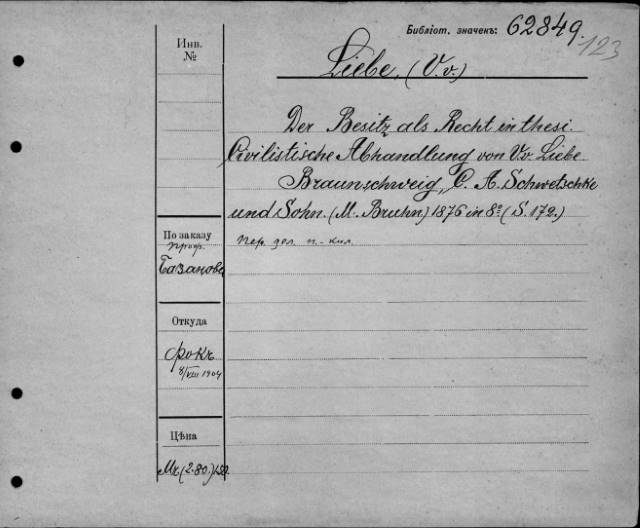 Библіот. значекъ: 62849.
123
Инв.
№
Liebe, (V. v.)
Der Besitz als Recht in thesi.
Civilistische Abhandlung von V. v. Liebe.
Braunschweig, C. A. Schwetschke
und Sohn. (M. Bruhn) 1876 in 8º (S. 172.)
По заказу
проф.
Базанова
пер. дел. п.-кол.
Откуда
Фокъ
8/VIII 1904
Цѣна
Mk. (2.80.)